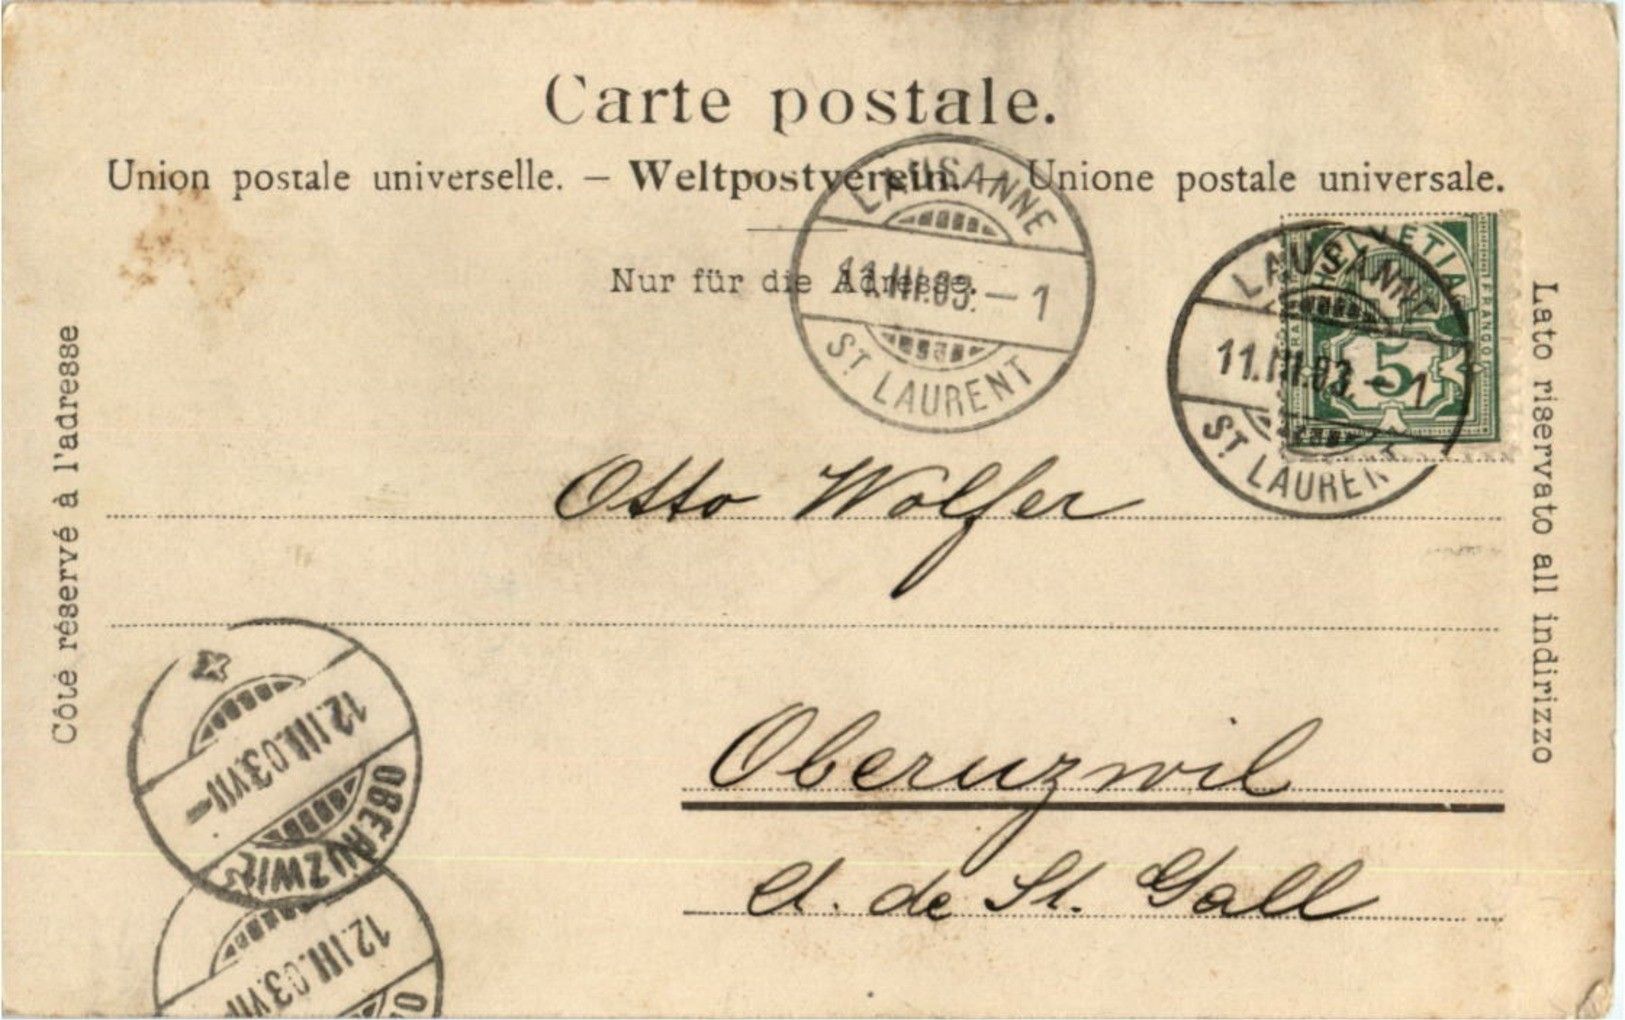 Carte postale.
Union postale universelle. – Weltpostverein. – Unione postale universale.
Nur für die Adresse.
Côté réservé à l'adresse
Lato riservato all indirizzo
LAUSANNE
11.III.03.–1
ST LAURENT
HELVETIA
FRANCO
5
LAUSANNE
11.III.03.–1
ST LAURENT
Otto Wolfer
Oberuzwil
Ct. de St. Gall
12.III.03.VII–
OBERUZWIL
12.III.03.VII